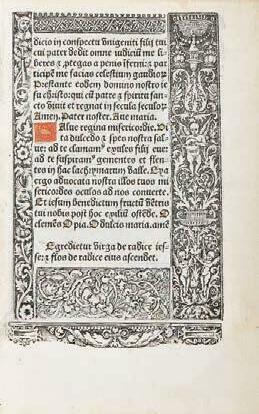 dicio in conspectu vnigeniti filij tui
cui pater dedit omne iudiciũ me li-
beres ⁊ ꝓtegas a penis iferni: ⁊ par
ticipẽ me facias celestium gaudioꝝ
Prestante eodem domino nostro ie-
su christo qui cũ patre ⁊ spiritu san-
cto viuit et regnat in secula seculoꝝ
Amen. Pater noster. Aue maria.
Salue regina misericordie. Vi
ta dulcedo ⁊ spes nostra sal-
ue: ad te clamamꝰ exules filij eue:
ad te suspiramꝰ gementes et flen-
tes in hac lachrymarum valle. Eya
ergo aduocata nostra illos tuos mi
sericordes oculos ad nos conuerte.
Et iesum benedictum fructũ vẽtris
tui nobis post hoc exiliũ ostẽde. O
clemẽs O pia. O dulcis maria. amẽ
Egredietur virga de radice ies-
se: ⁊ flos de radice eius ascendet.